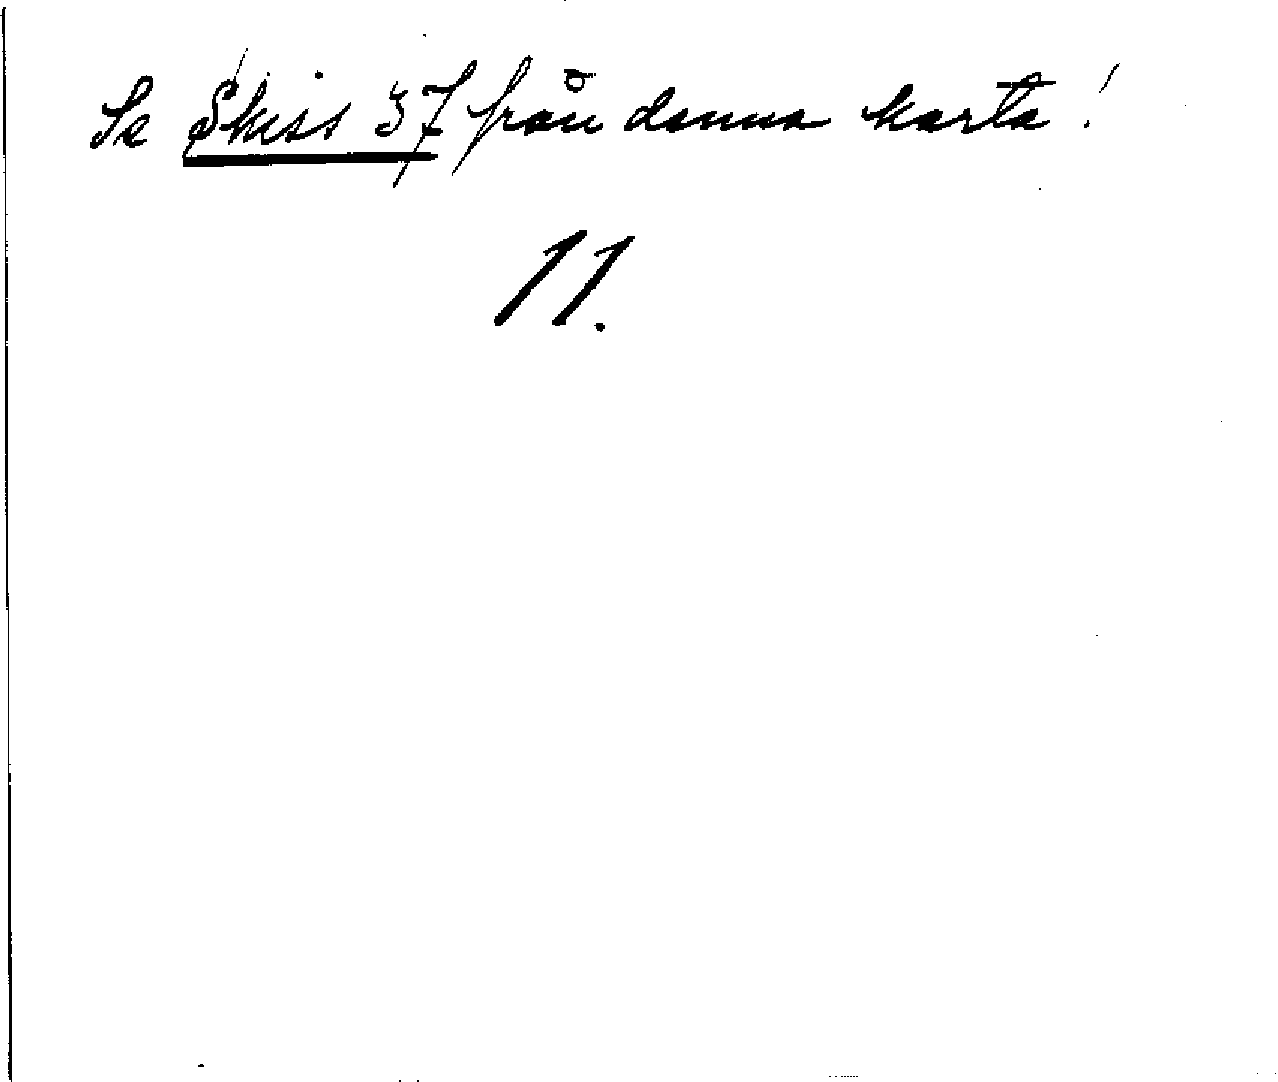 Se Skiss 37 från denna karta!
11.